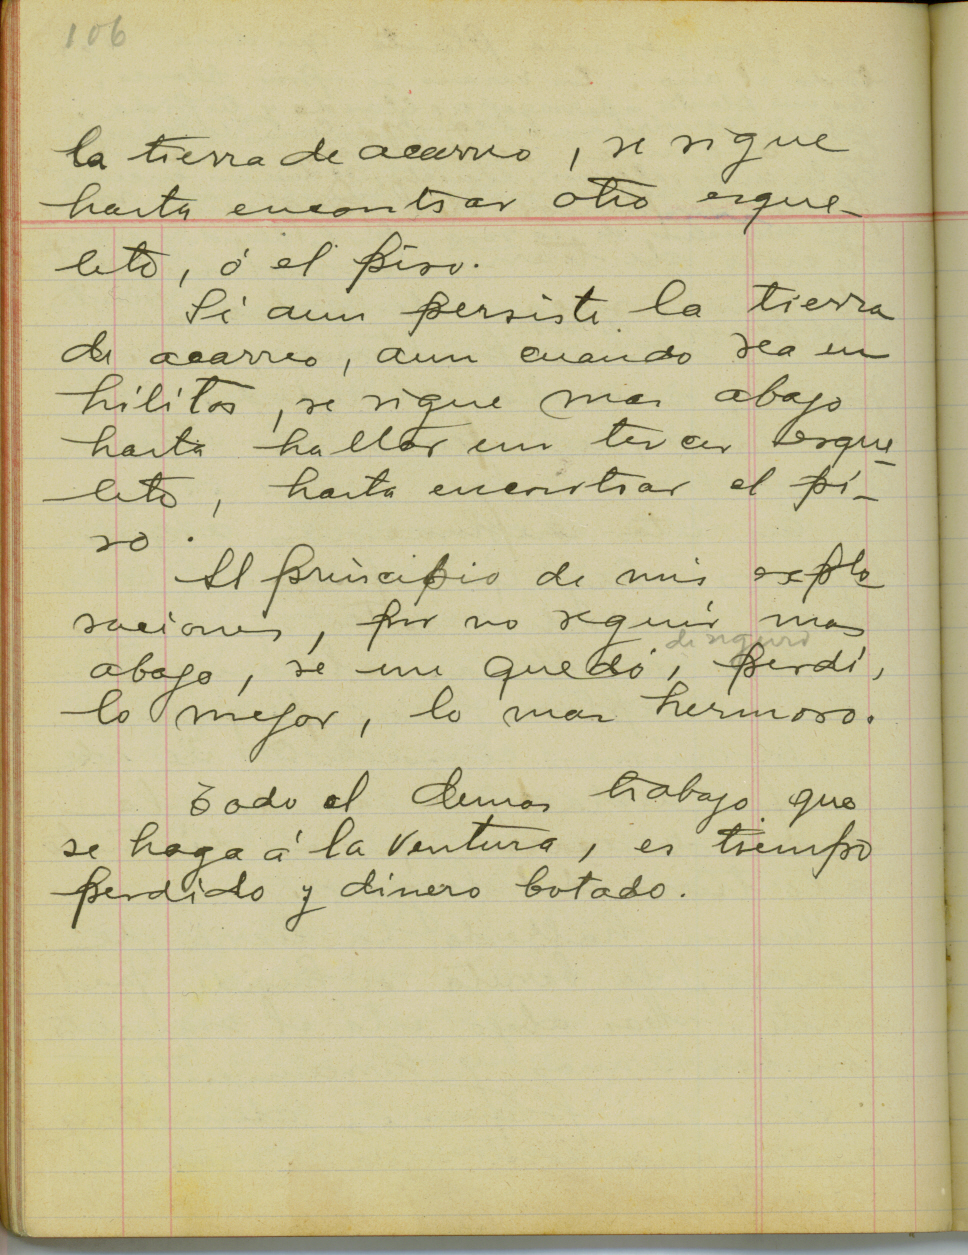 106
la tierra de acarreo, se sigue
hasta encontrar otro esque-
leto, ó el piso.
Si aun persiste la tierra
de acarreo, aun cuando sea en
hilitos, se sigue mas abajo
hasta hallar un tercer esque-
leto, hasta encontrar el pi-
so.
Al principio de mis explo-
raciones, por no seguir mas
de seguro
abajo, se me quedó, perdí,
lo mejor, lo mas hermoso.
Todo el demas trabajo que
se haga á la ventura, es tiempo
perdido y dinero botado.